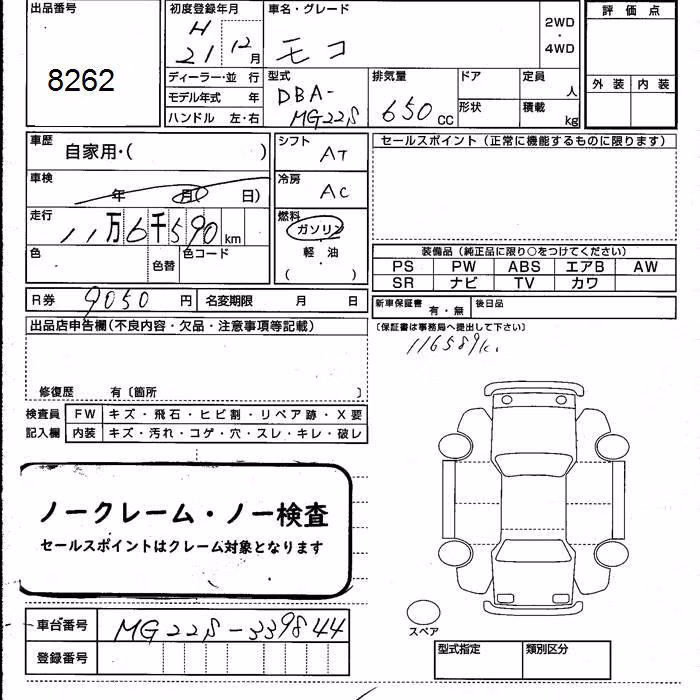 出品番号
8262
初度登録年月
H
21 12月
車名・グレード
モコ
2WD
・
4WD
評価点
外装 内装
ディーラー・並 行
モデル年式 年
ハンドル 左・右
型式
DBA-
MG22S
排気量
650 cc
ドア
形状
定員
人
積載
kg
車歴
自家用・( )
車検
年 月 日)
走行
11万6千590km
色
色替
色コード
シフト
AT
冷房
AC
燃料
ガソリン
軽 油
( )
セールスポイント(正常に機能するものに限ります)
装備品(純正品に限り○をつけてください)
PS PW ABS エアB AW
SR ナビ TV カワ
R券 9050 円 名変期限 月 日
新車保証書 有・無 後日品
(保証書は事務局へ提出して下さい)
116589k.
出品店申告欄(不良内容・欠品・注意事項等記載)
修復歴 有〔箇所 〕
検査員 FW キズ・飛石・ヒビ割・リペア跡・X要
記入欄 内装 キズ・汚れ・コゲ・穴・スレ・キレ・破レ
ノークレーム・ノー検査
セールスポイントはクレーム対象となります
車台番号 MG22S-339844
登録番号
スペア
型式指定 類別区分